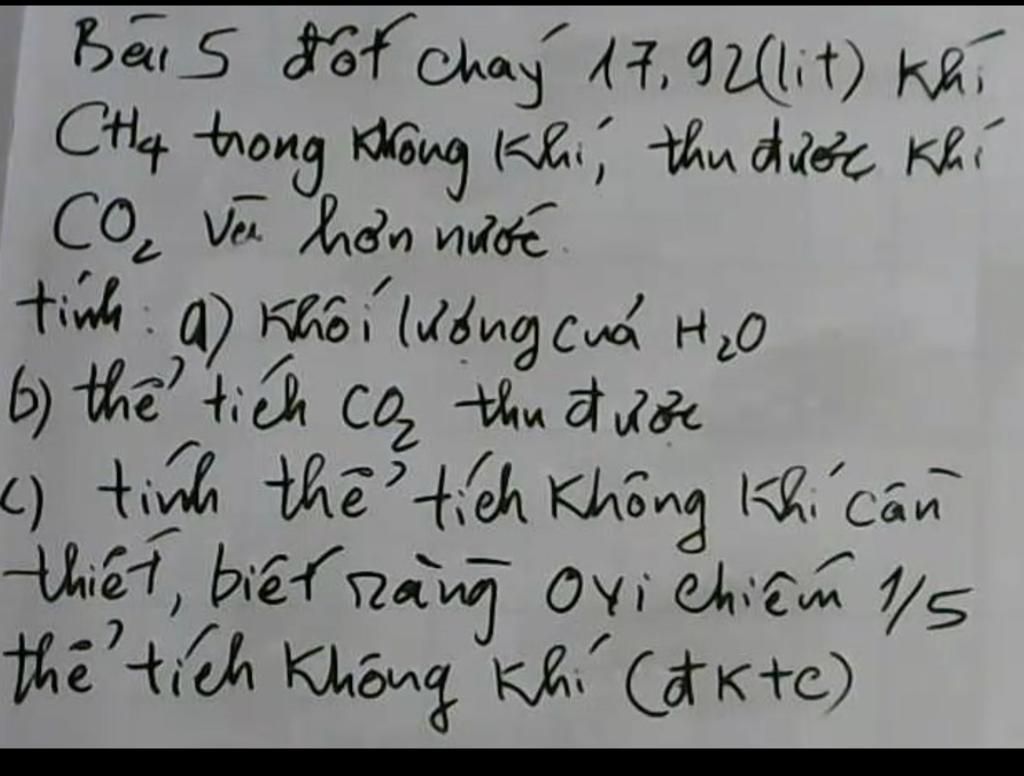 Bài 5 đốt cháy 17,92(lit) khí
CH4 trong không khí, thu được khí
CO2 và hơn nước.
tính: a) khối lượng cuả H2O
b) thể tích CO2 thu được
c) tính thể tích không khí cần
thiết, biết rằng oxi chiếm 1/5
thể tích không khí (đktc)